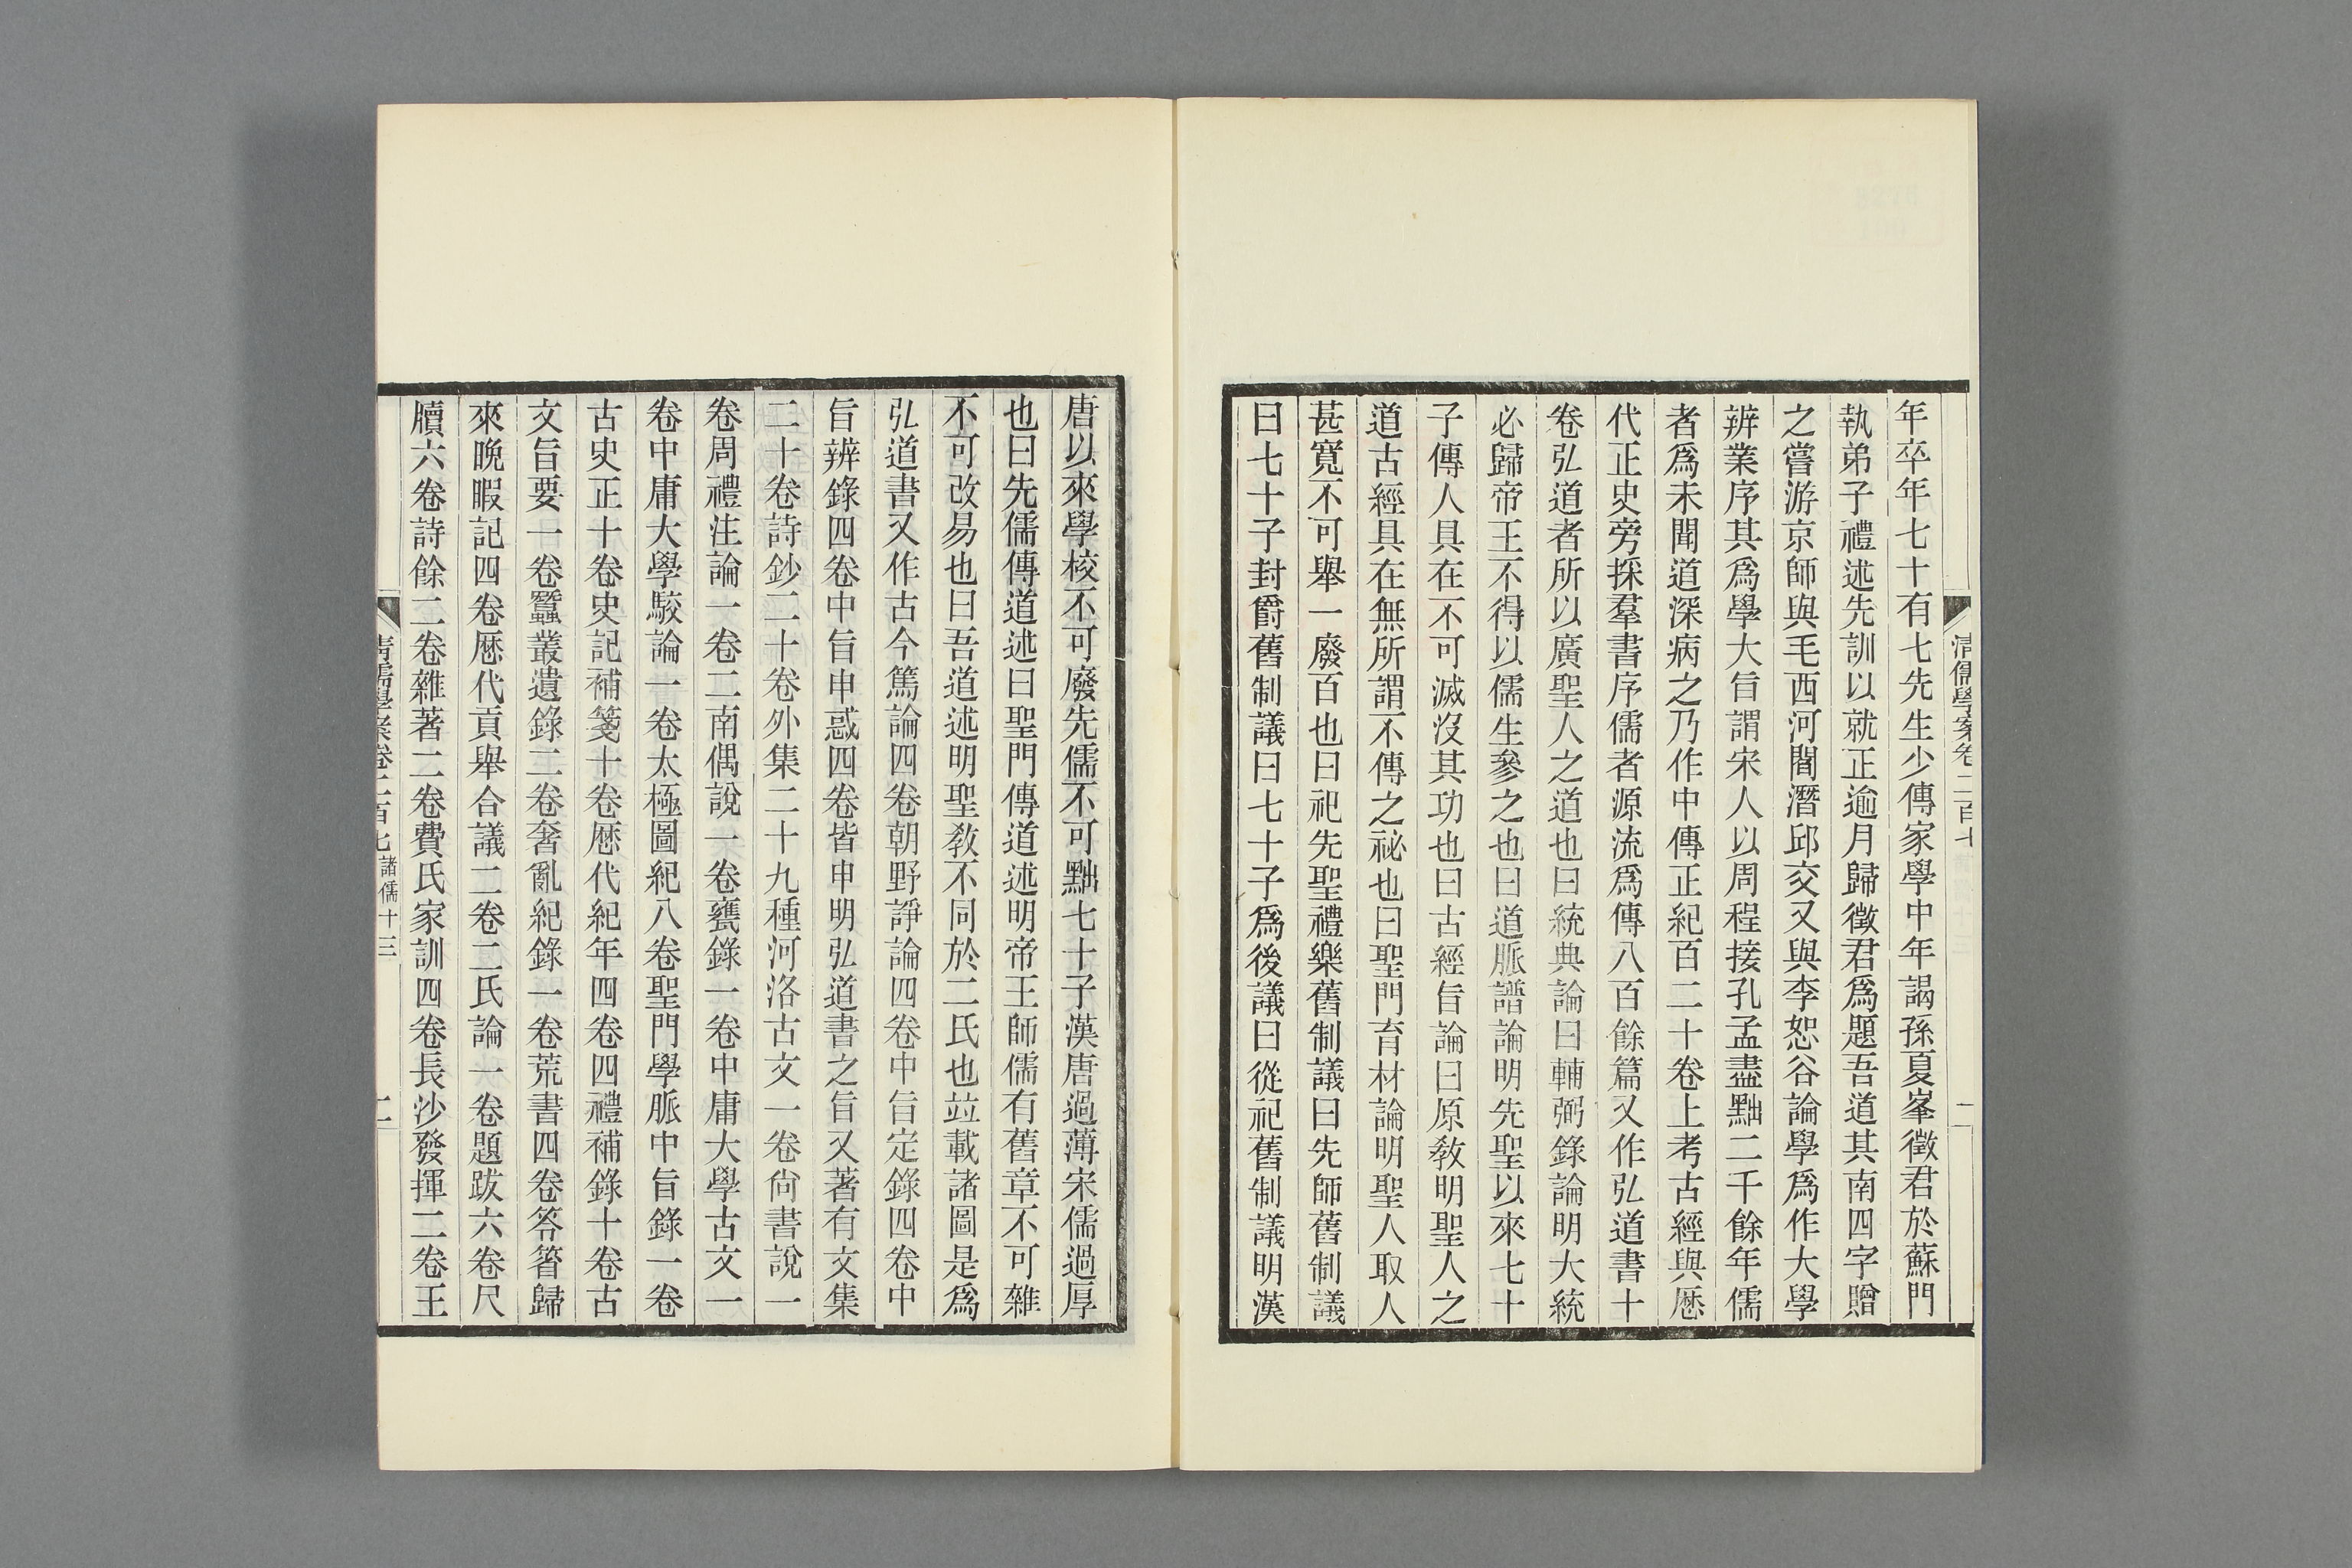 清儒學案卷二百七
一
年卒年七十有七先生少傳家學中年謁孫夏峯徵君於蘇門
執弟子禮述先訓以就正逾月歸徵君爲題吾道其南四字贈
之嘗游京師與毛西河閻潛邱交又與李恕谷論學爲作大學
辨業序其爲學大旨謂宋人以周程接孔孟盡黜二千餘年儒
者爲未聞道深病之乃作中傳正紀百二十卷上考古經與歷
代正史旁採羣書序儒者源流爲傳八百餘篇又作弘道書十
卷弘道者所以廣聖人之道也曰統典論曰輔弼錄論明大統
必歸帝王不得以儒生參之也曰道脈譜論明先聖以來七十
子傳人具在不可滅沒其功也曰古經旨論曰原敎明聖人之
道古經具在無所謂不傳之祕也曰聖門育材論明聖人取人
甚寬不可舉一廢百也曰祀先聖禮樂舊制議曰先師舊制議
曰七十子封爵舊制議曰七十子爲後議曰從祀舊制議明漢
唐以來學校不可廢先儒不可黜七十子漢唐過薄宋儒過厚
也曰先儒傳道述曰聖門傳道述明帝王師儒有舊章不可雜
不可改易也曰吾道述明聖敎不同於二氏也竝載諸圖是爲
弘道書又作古今篤論四卷朝野諍論四卷中旨定錄四卷中
旨辨錄四卷中旨申惑四卷皆申明弘道書之旨又著有文集
二十卷詩鈔二十卷外集二十九種河洛古文一卷尙書說一
卷周禮注論一卷二南偶說一卷甕錄一卷中庸大學古文一
卷中庸大學駮論一卷太極圖紀八卷聖門學脈中旨錄一卷
古史正十卷史記補箋十卷歷代紀年四卷四禮補錄十卷古
文旨要一卷蠶叢遺錄二卷奢亂紀錄一卷荒書四卷筌簪歸
來晚暇記四卷歷代貢舉合議二卷二氏論一卷題跋六卷尺
牘六卷詩餘二卷雜著二卷費氏家訓四卷長沙發揮二卷王
清儒學案卷二百七 諸儒十三
二